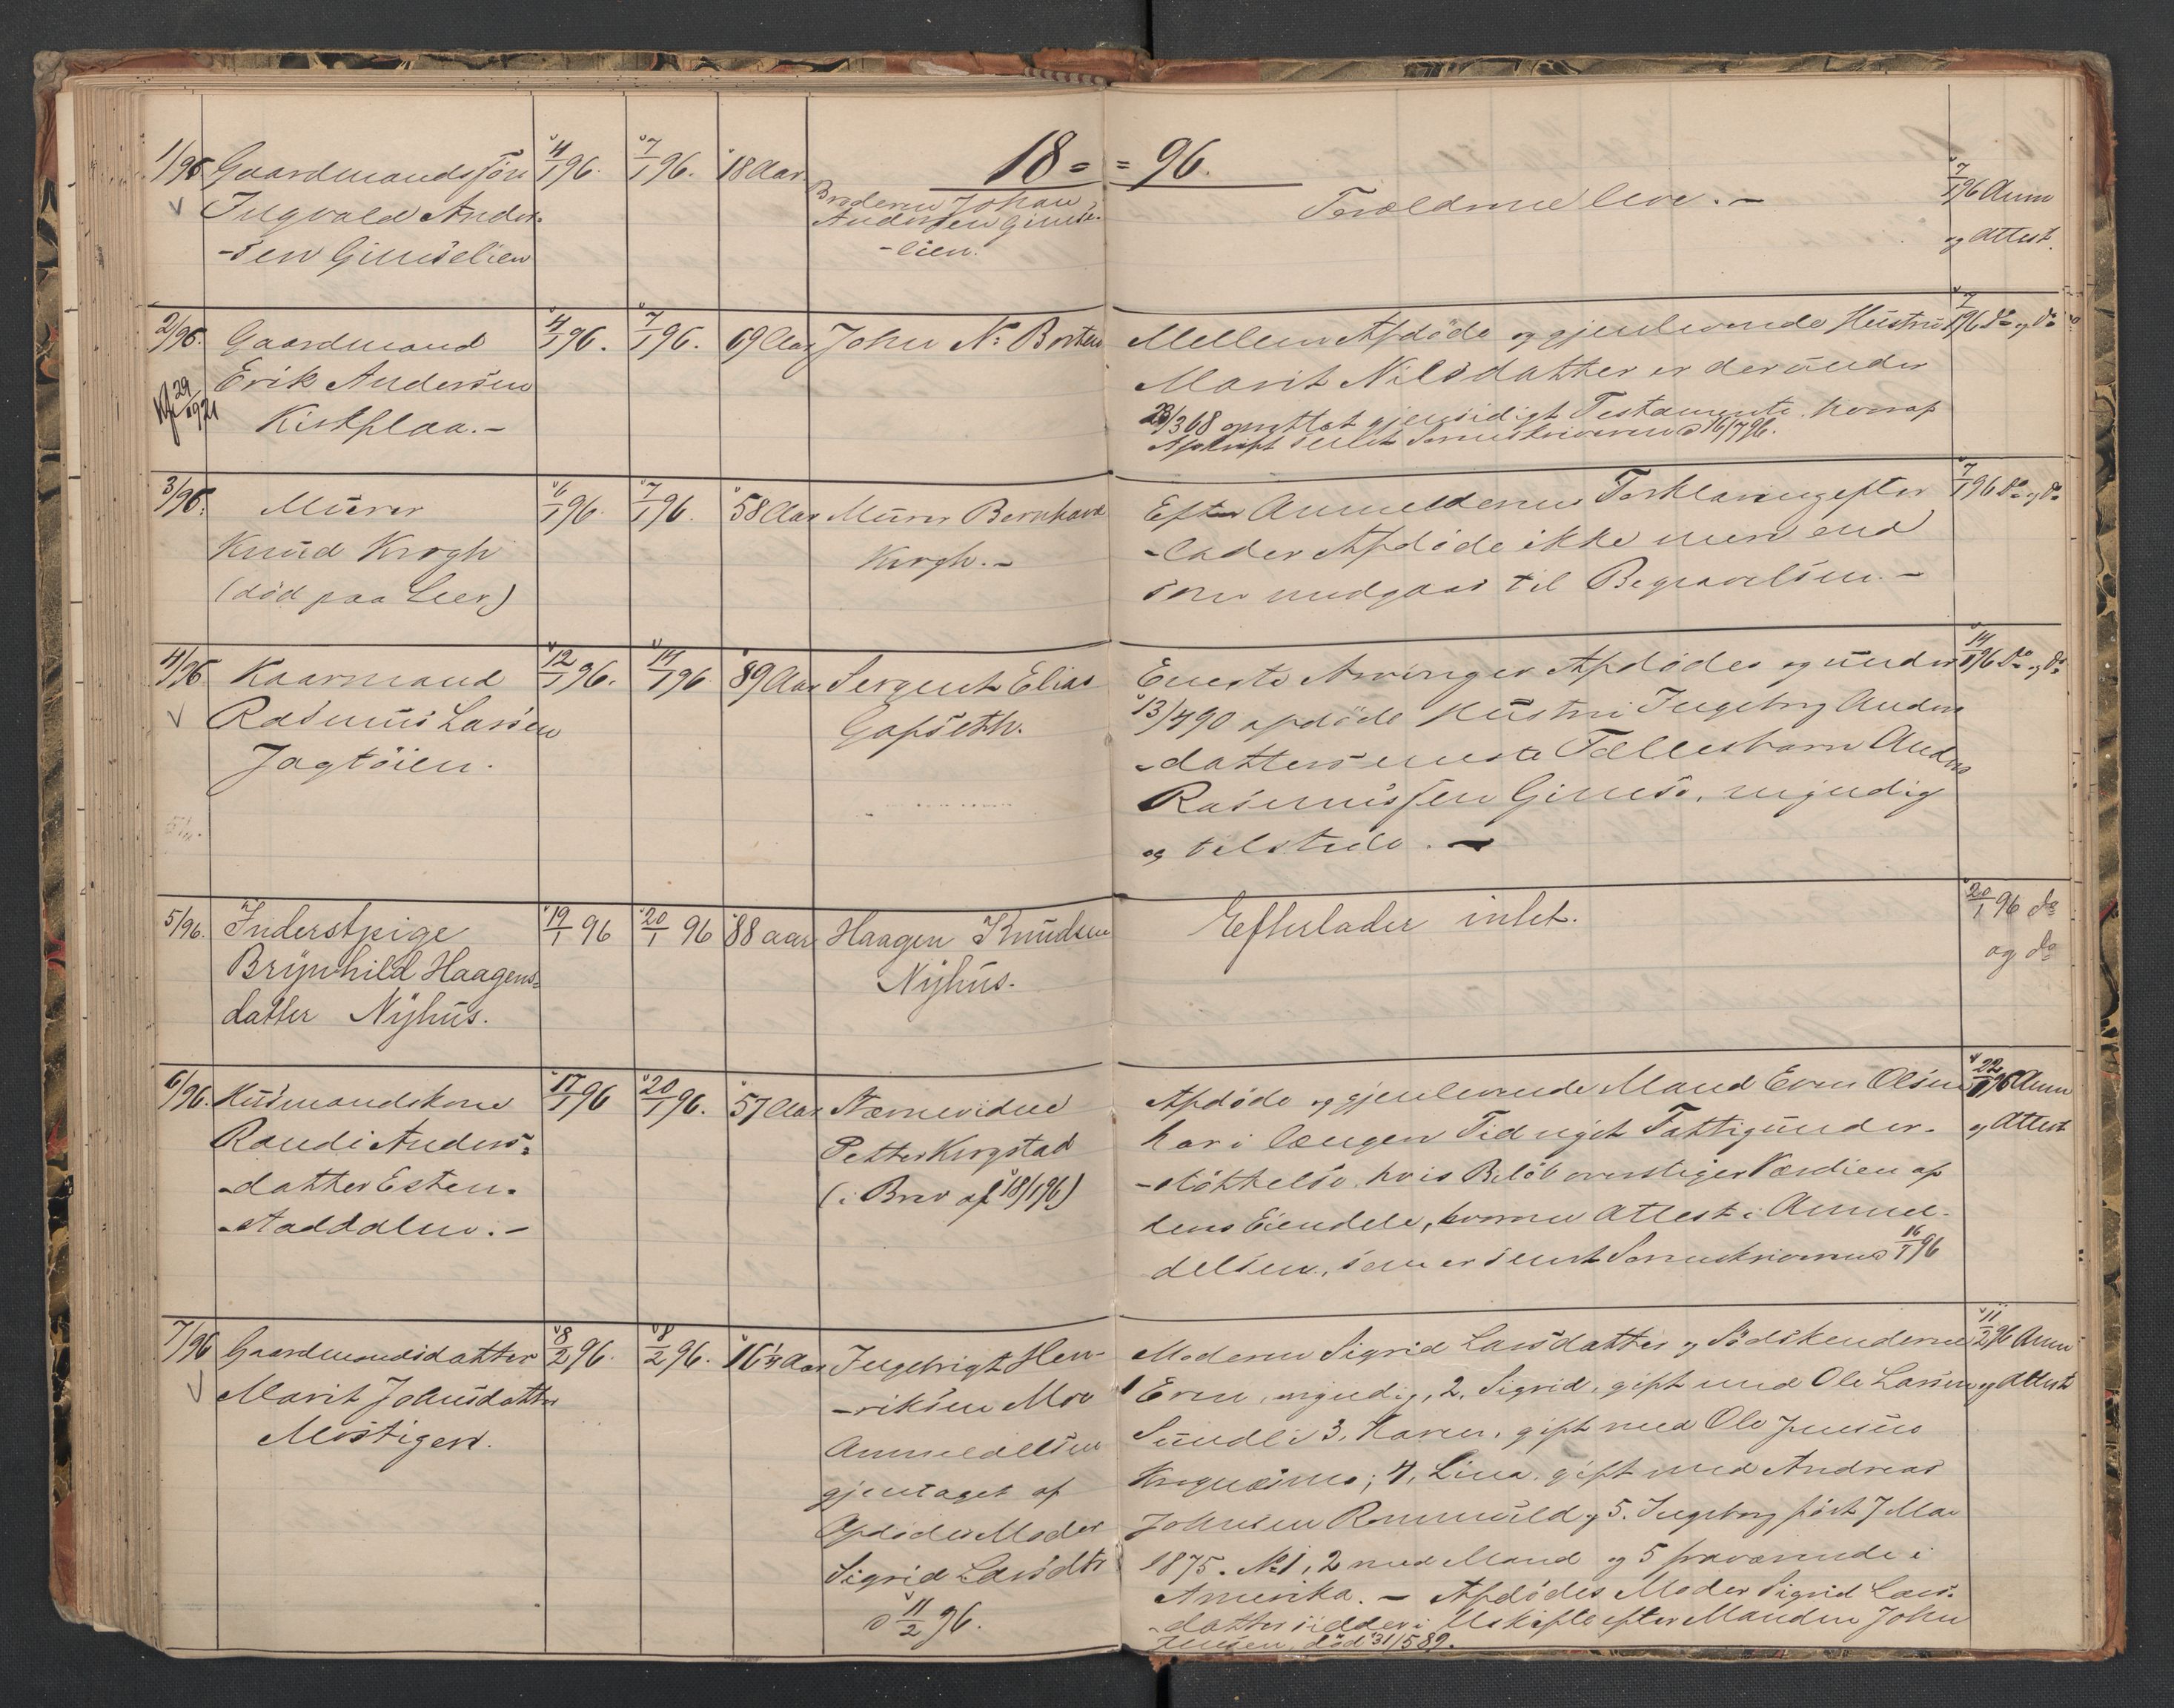 18 = = 96.
1/96 Gaardmandssön 4/1 96. 7/1 96. 18 Aar Broderen Johan Forældrene leve. - 7/1 96 Anm
Ingvald Ander- Andersen Gimse- og Attest.
-sen Gimselien -lien.
2/96. Gaardmand 4/1 96. 7/1 96. 69 Aar John N. Borten Mellem Afdöde og gjenlevende Hustru 7/1 96 do og do
Erik Andersen Marit Nilsdatter er der under
29/ 1921 Kirkflaa. - 23/3 68 oprettet gjensidigt Testamente hvoraf
Afskrift sendt Sorenskriveren 16/7 96.
3/96. Murer 6/1 96. 7/1 96. 58 Aar Murer Bernhard Efter Anmelderens Forklaring efter 7/1 96 do og do
Knud Krogh Krogh. - -lader Afdöde ikke mere end
(död paa Leer) som medgaar til Begravelsen. -
4/96 Kaarmand 12/1 96. 14/1 96 89 Aar Sergent Elias Eneste Arvinger Afdödes og under 14/1 96 do og do
Rasmus Larsen Gafseth. 13/4 90 afdöde Hustru Ingeborg Anders
Jagtöien. -datters eneste Fællesbarn Anders
Rasmussen Gimse, myndig
og tilstede. -
5/96. Inderstpige 19/1 96 20/1 96 88 aar Haagen Knudsen Efterlader intet. 20/1 96 do
Brynhild Haagens- Nyhus. og do
datter Nyhus.
6/96. Husmandskone 17/1 96 20/1 96. 57 Aar Stævnevidne Afdöde og gjenlevende Mand Even Olsen 22/1 96 Anm
Randi Anders- Petter Krogstad har i længen Tid nydt Fattigunder- og Attest
-datter Esten- (i Brev af 18/1 96) -støttelse hvis Belöb overstiger Værdien af
-staddalen. - dens Eiendele, hvorom Attest i Anmel-
delsen, som er sendt Sorenskriveren 16/1 96
7/96 Gaardmandsdatter 8/2 96. 8/2 96. 16 1/4 Aar Ingebrigt Hen- Moderen Sigrid Larsdatter og Södskenderne 11/2 96 Anm
Marit Johnsdatter -riksen Moe 1 Even, myndig, 2. Sigrid, gift med Ole Larsen og Attest
Mostigen. Anmeldelsen Sundli 3. Karen, gift med Ole Jensen
gjentaget af 4, Lina, gift med Andreas
Afdödes Moder Johnsen og 5. Ingeborg födt 7 Mai
Sigrid Larsdtr 1875. No 1, 2 med Mand og 5 fraværende i
11/2 96. Amerika. - Afdödes Moder Sigrid Lars-
-datter sidder i Uskifte efter Manden John
Jensen, död 31/5 89.